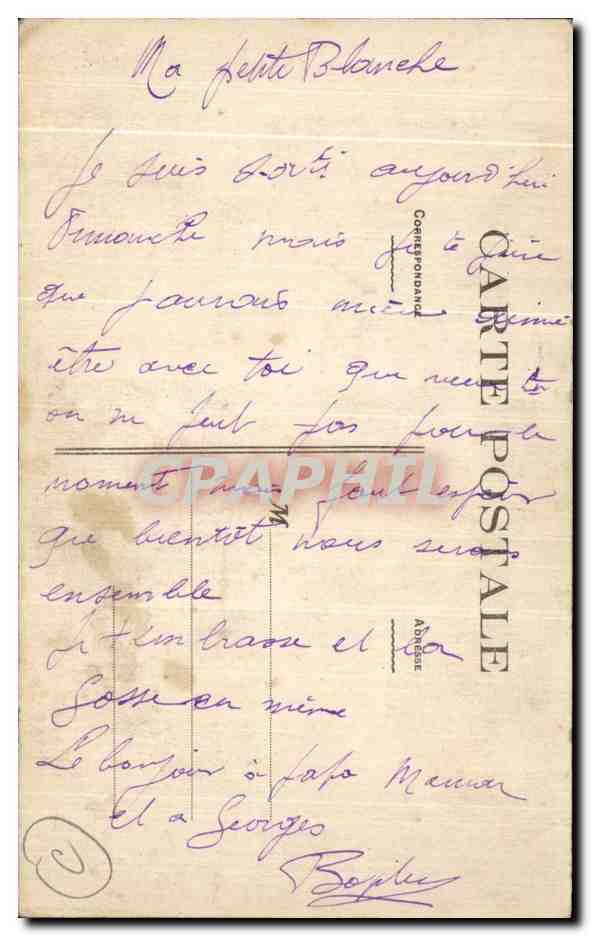 Ma petite Blanche
Je suis sorti aujourd'hui
Dimanche mais je te jure
que j'aurais mieu aimé
être avec toi que veux tu
on ne peut pas pour le
moment mais faut espoir
que bientôt nous serons
ensemble
Je t'embrasse et la
Gosse en même
Le bonjour à papa Maman
et a Georges
CARTE POSTALE
CORRESPONDANCE
ADRESSE
M
CPAPHIL
C